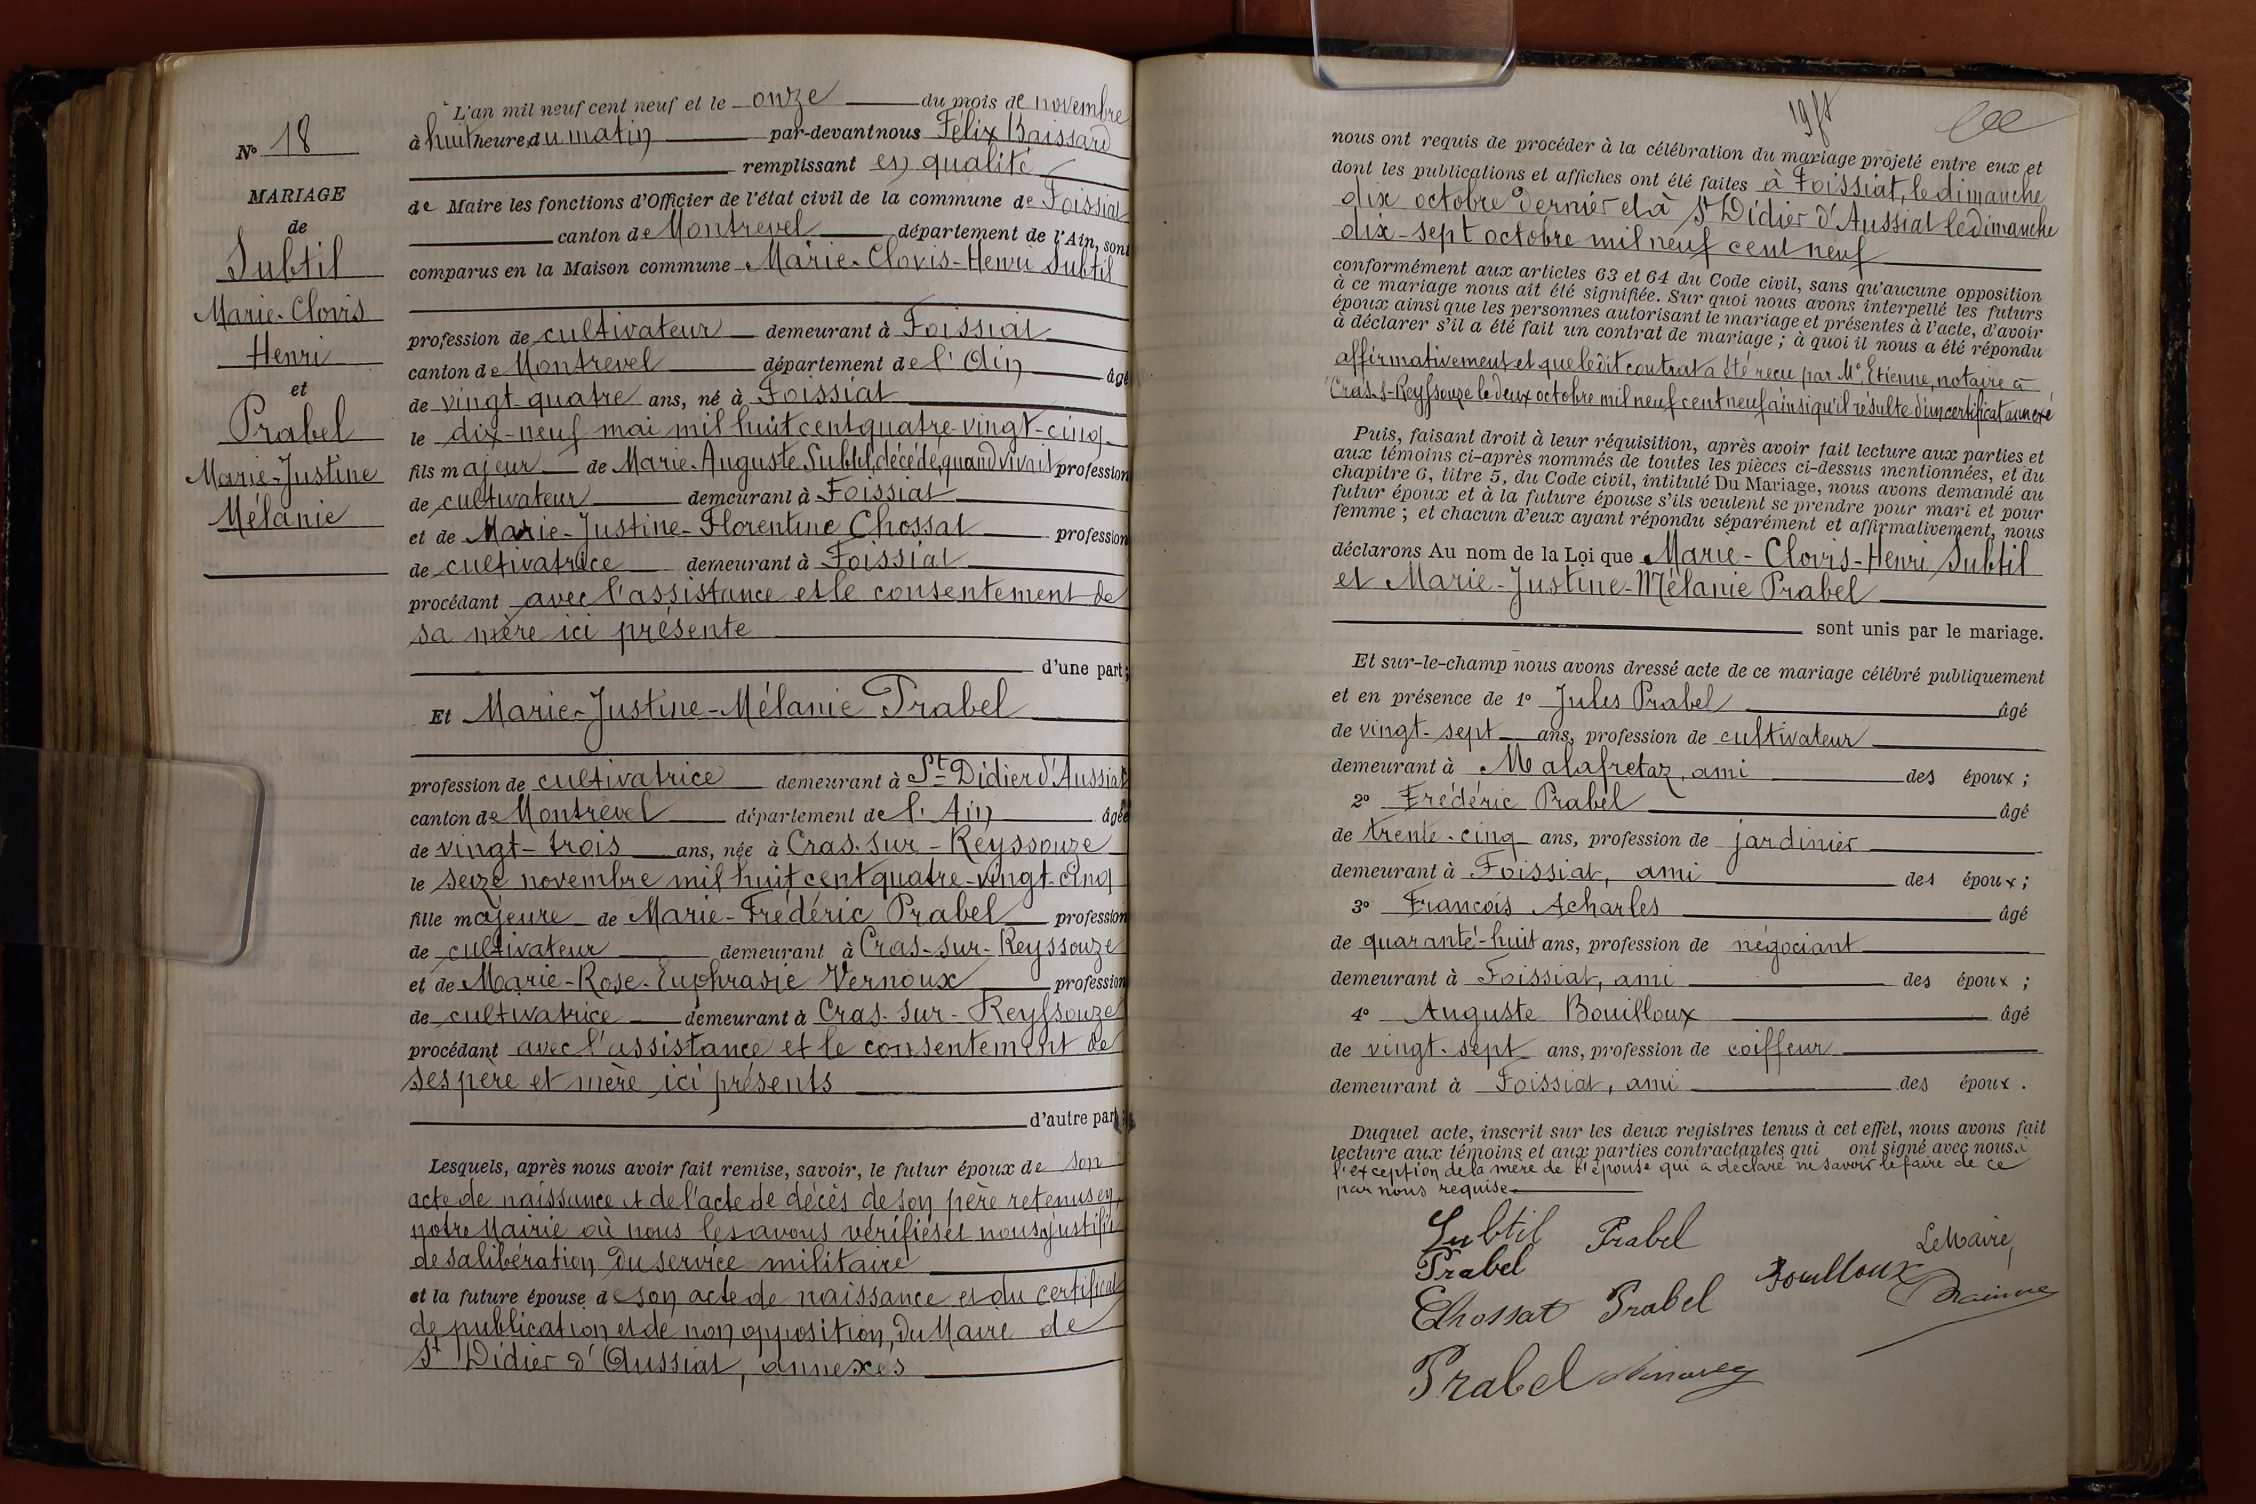 N° 18
MARIAGE
de
Subtil
Marie-Clovis
Henri
et
Prabel
Marie-Justine
Mélanie
L'an mil neuf cent neuf et le onze du mois de novembre
à huit heure du matin par-devant nous Félix Baissard
remplissant en qualité
de Maire les fonctions d'Officier de l'état civil de la commune de Foissiat
canton de Montrevel département de l'Ain, sont
comparus en la Maison commune Marie-Clovis-Henri Subtil
profession de cultivateur demeurant à Foissiat
canton de Montrevel département de l'Ain âgé
de vingt-quatre ans, né à Foissiat
le dix-neuf mai mil huit cent quatre-vingt-cinq
fils majeur de Marie-Auguste Subtil, décédé, quand vivait profession
de cultivateur demeurant à Foissiat
et de Marie-Justine-Florentine Chossat profession
de cultivatrice demeurant à Foissiat
procédant avec l'assistance et le consentement de
sa mère ici présente
d'une part;
Et Marie-Justine-Mélanie Prabel
profession de cultivatrice demeurant à St Didier d'Aussiat
canton de Montrevel département de l'Ain âgée
de vingt-trois ans, née à Cras-sur-Reyssouze
le seize novembre mil huit cent quatre-vingt-cinq
fille majeure de Marie-Frédéric Prabel profession
de cultivateur demeurant à Cras-sur-Reyssouze
et de Marie-Rose-Euphrasie Vernoux profession
de cultivatrice demeurant à Cras-sur-Reyssouze
procédant avec l'assistance et le consentement de
ses père et mère ici présents
d'autre part;
Lesquels, après nous avoir fait remise, savoir, le futur époux de son
acte de naissance et de l'acte de décès de son père retenus en
notre Mairie où nous les avons vérifiés et nous justifie
de sa libération du service militaire
et la future épouse de son acte de naissance et du certificat
de publication et de non opposition, du Maire de
St Didier d'Aussiat, annexés
nous ont requis de procéder à la célébration du mariage projeté entre eux et
dont les publications et affiches ont été faites à Foissiat, le dimanche
dix octobre dernier et à St Didier d'Aussiat le dimanche
dix-sept octobre mil neuf cent neuf
conformément aux articles 63 et 64 du Code civil, sans qu'aucune opposition
à ce mariage nous ait été signifiée. Sur quoi nous avons interpellé les futurs
époux ainsi que les personnes autorisant le mariage et présentes à l'acte, d'avoir
à déclarer s'il a été fait un contrat de mariage; à quoi il nous a été répondu
affirmativement et que ledit contrat a été reçu par Me Etienne, notaire à
Cras-s-Reyssouze le deux octobre mil neuf cent neuf ainsi qu'il résulte d'un certificat annexé
Puis, faisant droit à leur réquisition, après avoir fait lecture aux parties et
aux témoins ci-après nommés de toutes les pièces ci-dessus mentionnées, et du
chapitre 6, titre 5, du Code civil, intitulé Du Mariage, nous avons demandé au
futur époux et à la future épouse s'ils veulent se prendre pour mari et pour
femme; et chacun d'eux ayant répondu séparément et affirmativement, nous
déclarons Au nom de la Loi que Marie-Clovis-Henri Subtil
et Marie-Justine-Mélanie Prabel
sont unis par le mariage.
Et sur-le-champ nous avons dressé acte de ce mariage célébré publiquement
et en présence de 1° Jules Prabel âgé
de vingt-sept ans, profession de cultivateur
demeurant à Malafretaz, ami des époux;
2° Frédéric Prabel âgé
de trente-cinq ans, profession de jardinier
demeurant à Foissiat, ami des époux;
3° François Acharles âgé
de quarante-huit ans, profession de négociant
demeurant à Foissiat, ami des époux;
4° Auguste Bouilloux âgé
de vingt-sept ans, profession de coiffeur
demeurant à Foissiat, ami des époux.
Duquel acte, inscrit sur les deux registres tenus à cet effet, nous avons fait
lecture aux témoins et aux parties contractantes qui ont signé avec nous à
l'exception de la mère de l'épouse qui a déclaré ne savoir le faire de ce
par nous requise
Subtil Prabel
Le Maire,
Prabel
Bouilloux
Chossat Prabel
Prabel